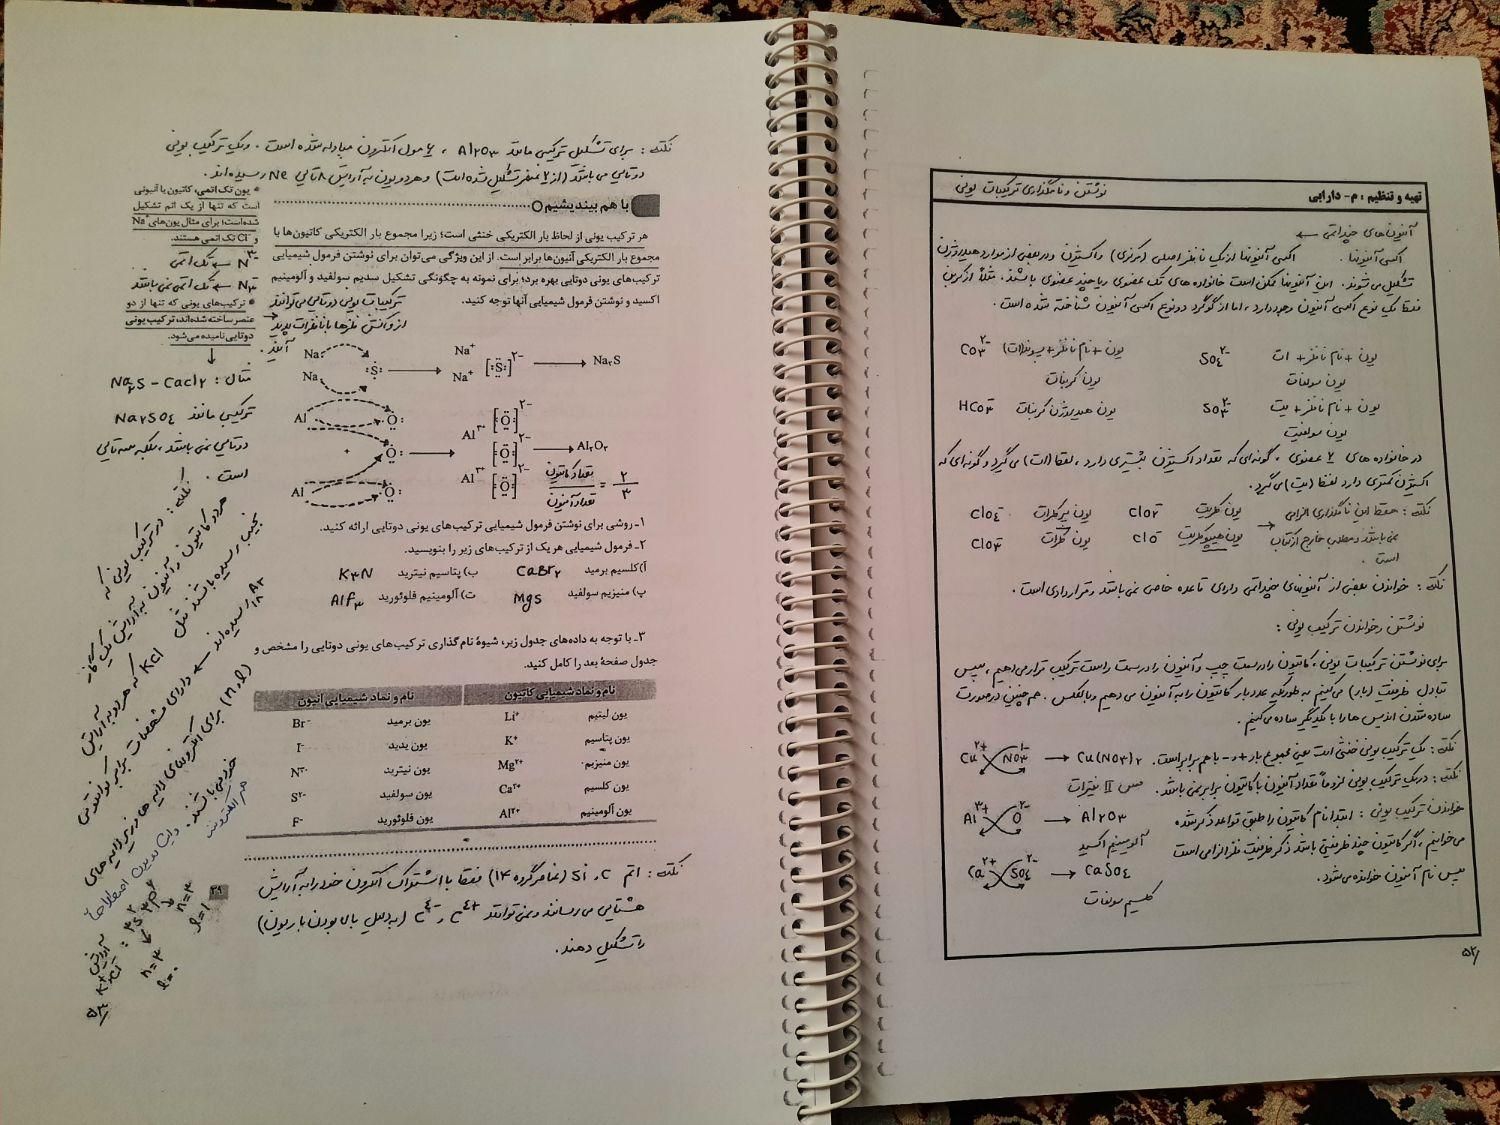 تهیه و تنظیم : م- دارابی
نوشتن و نامگذاری ترکیبات یونی
آنیون‌های چنداتمی ←
اکسی آنیونها . اکسی آنیونها از یک نافلز اصلی (مرکزی) و اکسیژن و در بعضی از موارد هیدروژن
تشکیل می شوند . این آنیونها ممکن است خانواده های تک عضوی و یا چند عضوی باشند . مثلاً از کربن
فقط یک نوع اکسی آنیون وجود دارد ، اما از گوگرد دو نوع اکسی آنیون شناخته شده است .
یون + نام نافلز + ات SO₄²⁻ یون + نام نافلز + پسوند(ات) CO₃²⁻
یون سولفات یون کربنات
یون + نام نافلز + یت SO₃²⁻ یون هیدروژن کربنات HCO₃⁻
یون سولفیت
در خانواده های ۲ عضوی ، گونه‌ای که تعداد اکسیژن بیشتری دارد ، لفظ (ات) می گیرد و گونه‌ای که
اکسیژن کمتری دارد لفظ (یت) می گیرد .
نکته : حفظ این نامگذاری الزامی یون کلریت ClO₂⁻ یون پرکلرات ClO₄⁻
نمی باشد و مطلب خارج از کتاب → یون هیپوکلریت ClO⁻ یون کلرات ClO₃⁻
است .
نکته : خواندن بعضی از آنیونهای چنداتمی دارای قاعده خاصی نمی باشد و قراردادی است .
نوشتن و خواندن ترکیب یونی :
برای نوشتن ترکیبات یونی ، کاتیون را در سمت چپ و آنیون را در سمت راست ترکیب قرار می دهیم ، سپس
تبادل ظرفیت (بار) می کنیم به طوریکه عدد بار کاتیون را به آنیون می دهیم و بالعکس . هم چنین در صورت
ساده شدن اندیس ها را با یکدیگر ساده می کنیم .
نکته : یک ترکیب یونی خنثی است یعنی مجموع بار + و - با هم برابر است . Cu²⁺ NO₃¹⁻ → Cu(NO₃)₂
نکته : در یک ترکیب یونی لزوماً تعداد آنیون با کاتیون برابر نمی باشد . مس II نیترات
خواندن ترکیب یونی : ابتدا نام کاتیون را طبق قواعد ذکر شده Al³⁺ O²⁻ → Al₂O₃
می خوانیم ، اگر کاتیون چند ظرفیتی باشد ذکر ظرفیت فلز الزامی است آلومینیم اکسید
سپس نام آنیون خوانده می شود . Ca²⁺ SO₄²⁻ → CaSO₄
کلسیم سولفات
۵۲
نکته : برای تشکیل ترکیبی مانند Al₂O₃ ، ۶ مول الکترون مبادله شده است . و یک ترکیب یونی
دوتایی می باشد (از ۲ عنصر تشکیل شده است) و هر دو یون به آرایش ۸ تایی Ne رسیده اند .
با هم بیندیشیم
هر ترکیب یونی از لحاظ بار الکتریکی خنثی است؛ زیرا مجموع بار الکتریکی کاتیون‌ها با
مجموع بار الکتریکی آنیون‌ها برابر است. از این ویژگی می‌توان برای نوشتن فرمول شیمیایی
ترکیب‌های یونی دوتایی بهره برد؛ برای نمونه به چگونگی تشکیل سدیم سولفید و آلومینیم
اکسید و نوشتن فرمول شیمیایی آنها توجه کنید.
ترکیبات یونی دوتایی می توانند
از واکنش فلزها با نافلزات پدید
آیند .
• یون تک اتمی، کاتیون یا آنیونی
است که تنها از یک اتم تشکیل
شده‌است؛ برای مثال یون‌های Na⁺
و Cl⁻ تک اتمی هستند.
N³⁻ ← تک اتمی
N₃⁻ ← تک اتمی نمی باشد
• ترکیب‌های یونی که تنها از دو
عنصر ساخته شده‌اند، ترکیب یونی
دوتایی نامیده می‌شود.
مثال : Na₂S - CaCl₂
ترکیبی مانند Na₂SO₄
دوتایی نمی باشد ، بلکه سه تایی
است .
Na Na S → Na⁺ Na⁺ [S]²⁻ → Na₂S
Al Al O O O → Al³⁺ Al³⁺ [O]²⁻ [O]²⁻ [O]²⁻ → Al₂O₃
تعداد کاتیون / تعداد آنیون = ۲/۳
۱ـ روشی برای نوشتن فرمول شیمیایی ترکیب‌های یونی دوتایی ارائه کنید.
۲ـ فرمول شیمیایی هر یک از ترکیب‌های زیر را بنویسید.
آ) کلسیم برمید CaBr₂ ب) پتاسیم نیترید K₃N
پ) منیزیم سولفید MgS ت) آلومینیم فلوئورید AlF₃
۳ـ با توجه به داده‌های جدول زیر، شیوهٔ نام‌گذاری ترکیب‌های یونی دوتایی را مشخص و
جدول صفحهٔ بعد را کامل کنید.
نام و نماد شیمیایی کاتیون نام و نماد شیمیایی آنیون
یون لیتیم Li⁺ یون برمید Br⁻
یون پتاسیم K⁺ یون یدید I⁻
یون منیزیم Mg²⁺ یون نیترید N³⁻
یون کلسیم Ca²⁺ یون سولفید S²⁻
یون آلومینیم Al³⁺ یون فلوئورید F⁻
نکته : اتم C و Si (عناصر گروه ۱۴) فقط با اشتراک الکترون خود را به آرایش
هشتایی می رسانند و نمی توانند C⁴⁺ و C⁴⁻ (به دلیل بالا بودن بار یون)
را تشکیل دهند .
۳۹
نکته : در ترکیب یونی که
هر دو کاتیون و آنیون به آرایش یک گاز
نجیب رسیده باشند مثل KCl که هر دو به آرایش
₁₈Ar رسیده اند ← دارای مشخصات برابر کوانتومی
(n, l) برای الکترونهای لایه ها و زیرلایه های
خود می باشند . و این دو یون اصطلاحاً
هم الکترونند
K⁺ ، Cl⁻ : ۳s² ۳p⁶
n=۳ n=۳
l=۰ l=۱